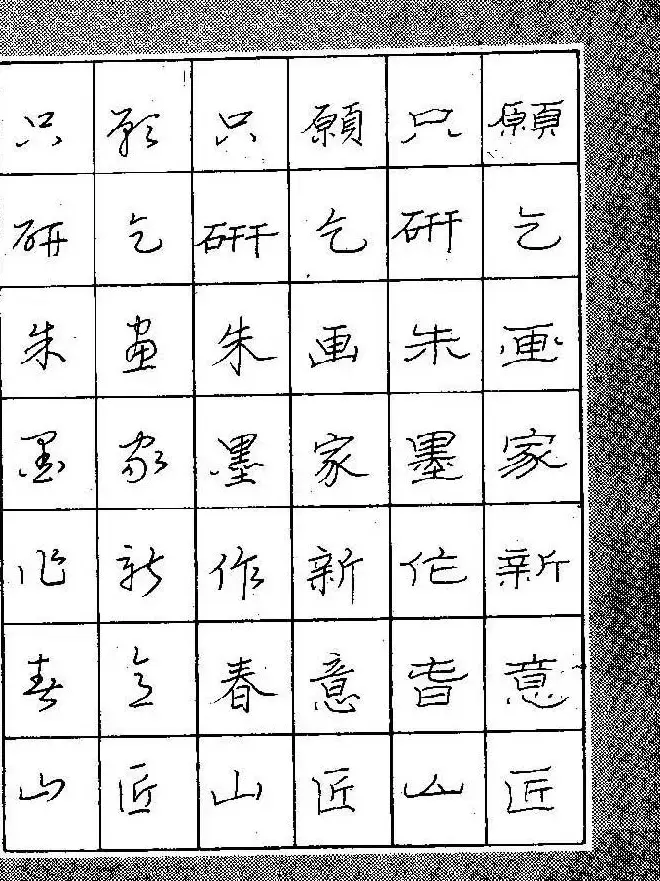 願乞画家新意匠
只研朱墨作春山
願乞画家新意匠
只研朱墨作春山
願乞畫家新意匠
只研朱墨作春山